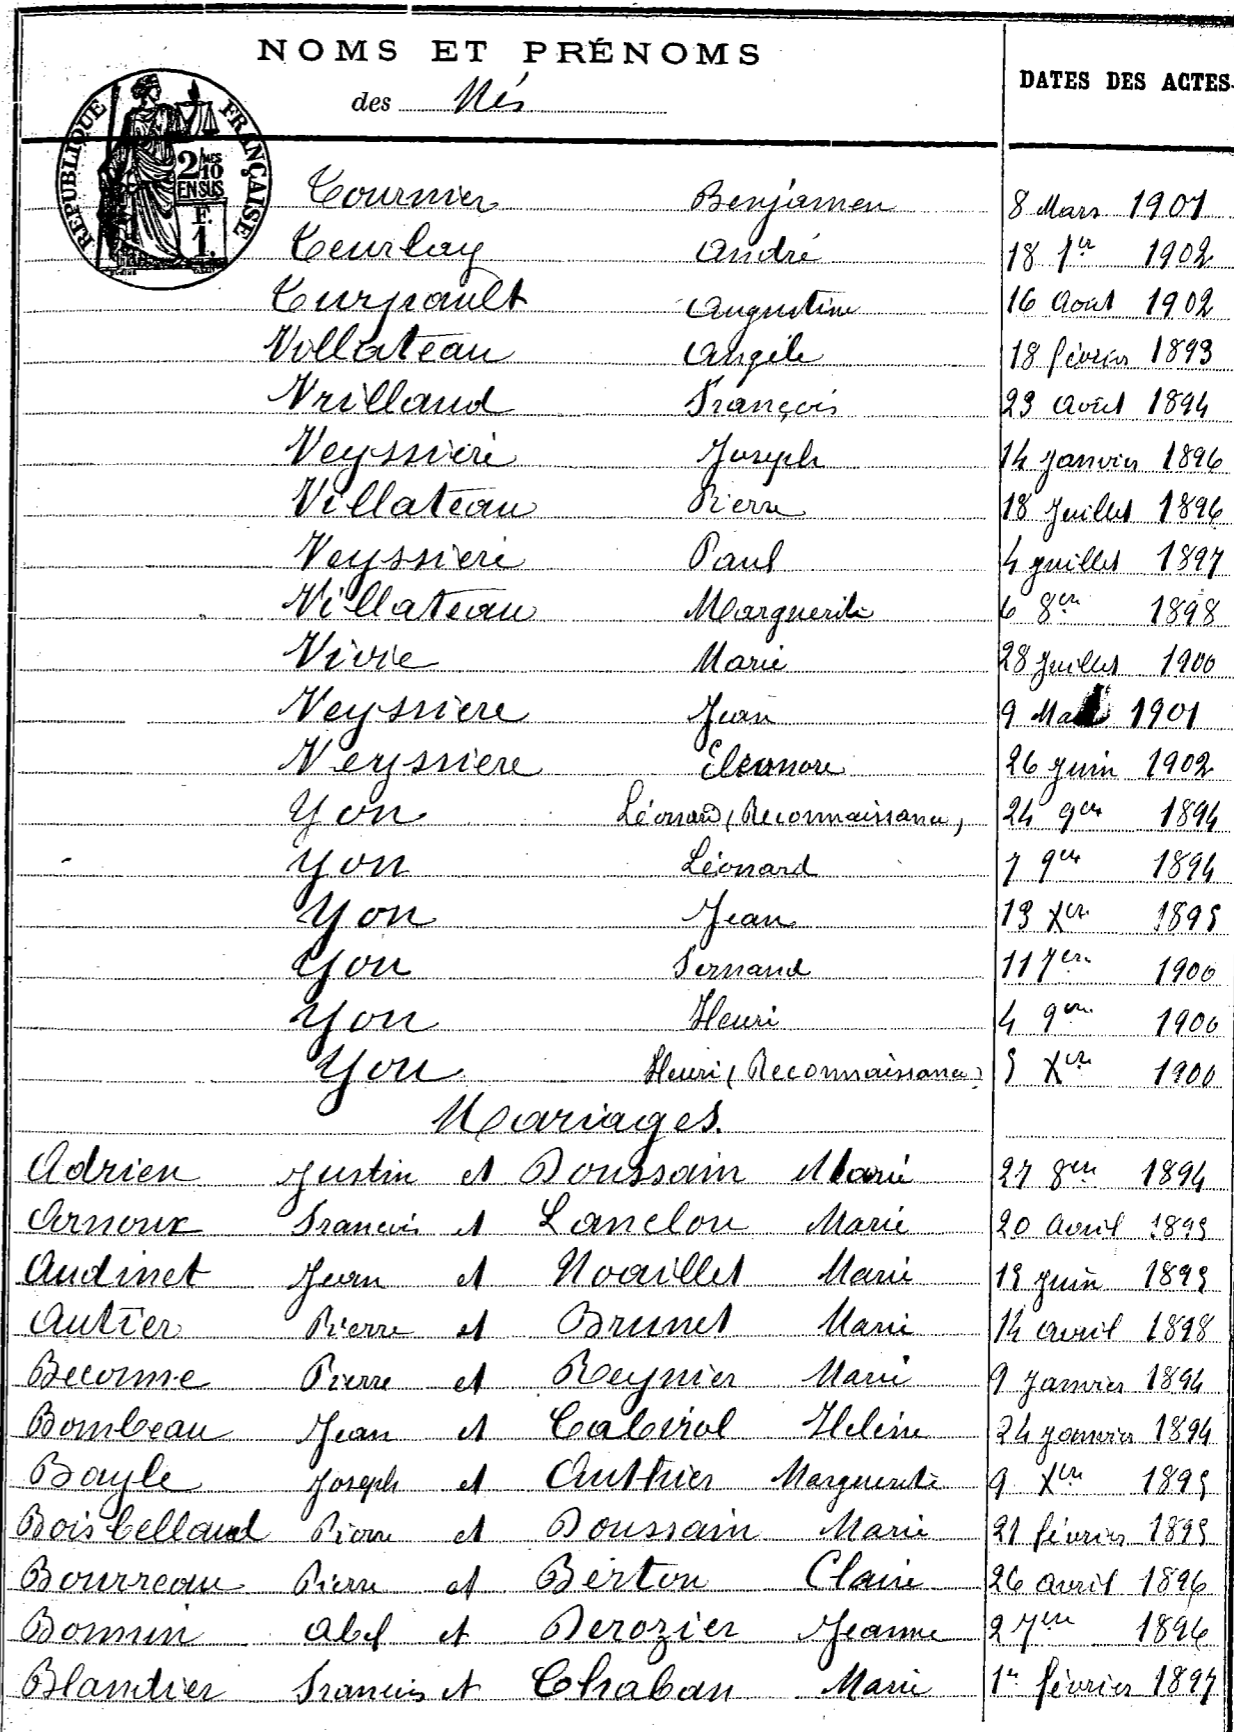 NOMS ET PRÉNOMS
des Nés
DATES DES ACTES
RÉPUBLIQUE FRANÇAISE
2/10 MES
EN SUS
F.
1.
Tournier Benjamen 8 Mars 1901
Teurlay André 18 1er 1902
Turpault Augustine 16 Aout 1902
Villateau Angèle 18 février 1893
Vrillaud François 23 Août 1894
Veyssière Joseph 14 Janvier 1896
Villateau Pierre 18 Juillet 1896
Veyssière Paul 4 Juillet 1897
Villateau Marguerite 6 8bre 1898
Vivie Marie 28 Juillet 1900
Veyssière Jean 9 1901
Veyssière Eléonore 26 Juin 1902
Yon Léonard (Reconnaissance) 24 9bre 1894
Yon Léonard 7 9bre 1894
Yon Jean 13 Xbre 1895
Yon Fernand 11 7bre 1900
Yon Henri 4 9bre 1900
Yon Henri (Reconnaissance) 5 Xbre 1900
Mariages.
Adrien Justin et Doussain Marie 27 8bre 1894
Arnoux Francois et Lanclou Marie 20 Avril 1895
Audinet Jean et Noaillet Marie 15 Juin 1895
Autier Pierre et Brunet Marie 14 Avril 1898
Beconne Pierre et Reynier Marie 9 Janvier 1894
Bombeau Jean et Cabirol Hélène 24 Janvier 1894
Bayle Joseph et Authier Marguerite 9 Xbre 1895
Boisbellaud Pierre et Doussain Marie 21 février 1895
Bourreau Pierre et Berton Claire 26 Avril 1896
Bonnin Abel et Derozier Jeanne 2 7bre 1896
Blantier Francois et Chaban Marie 1er février 1897